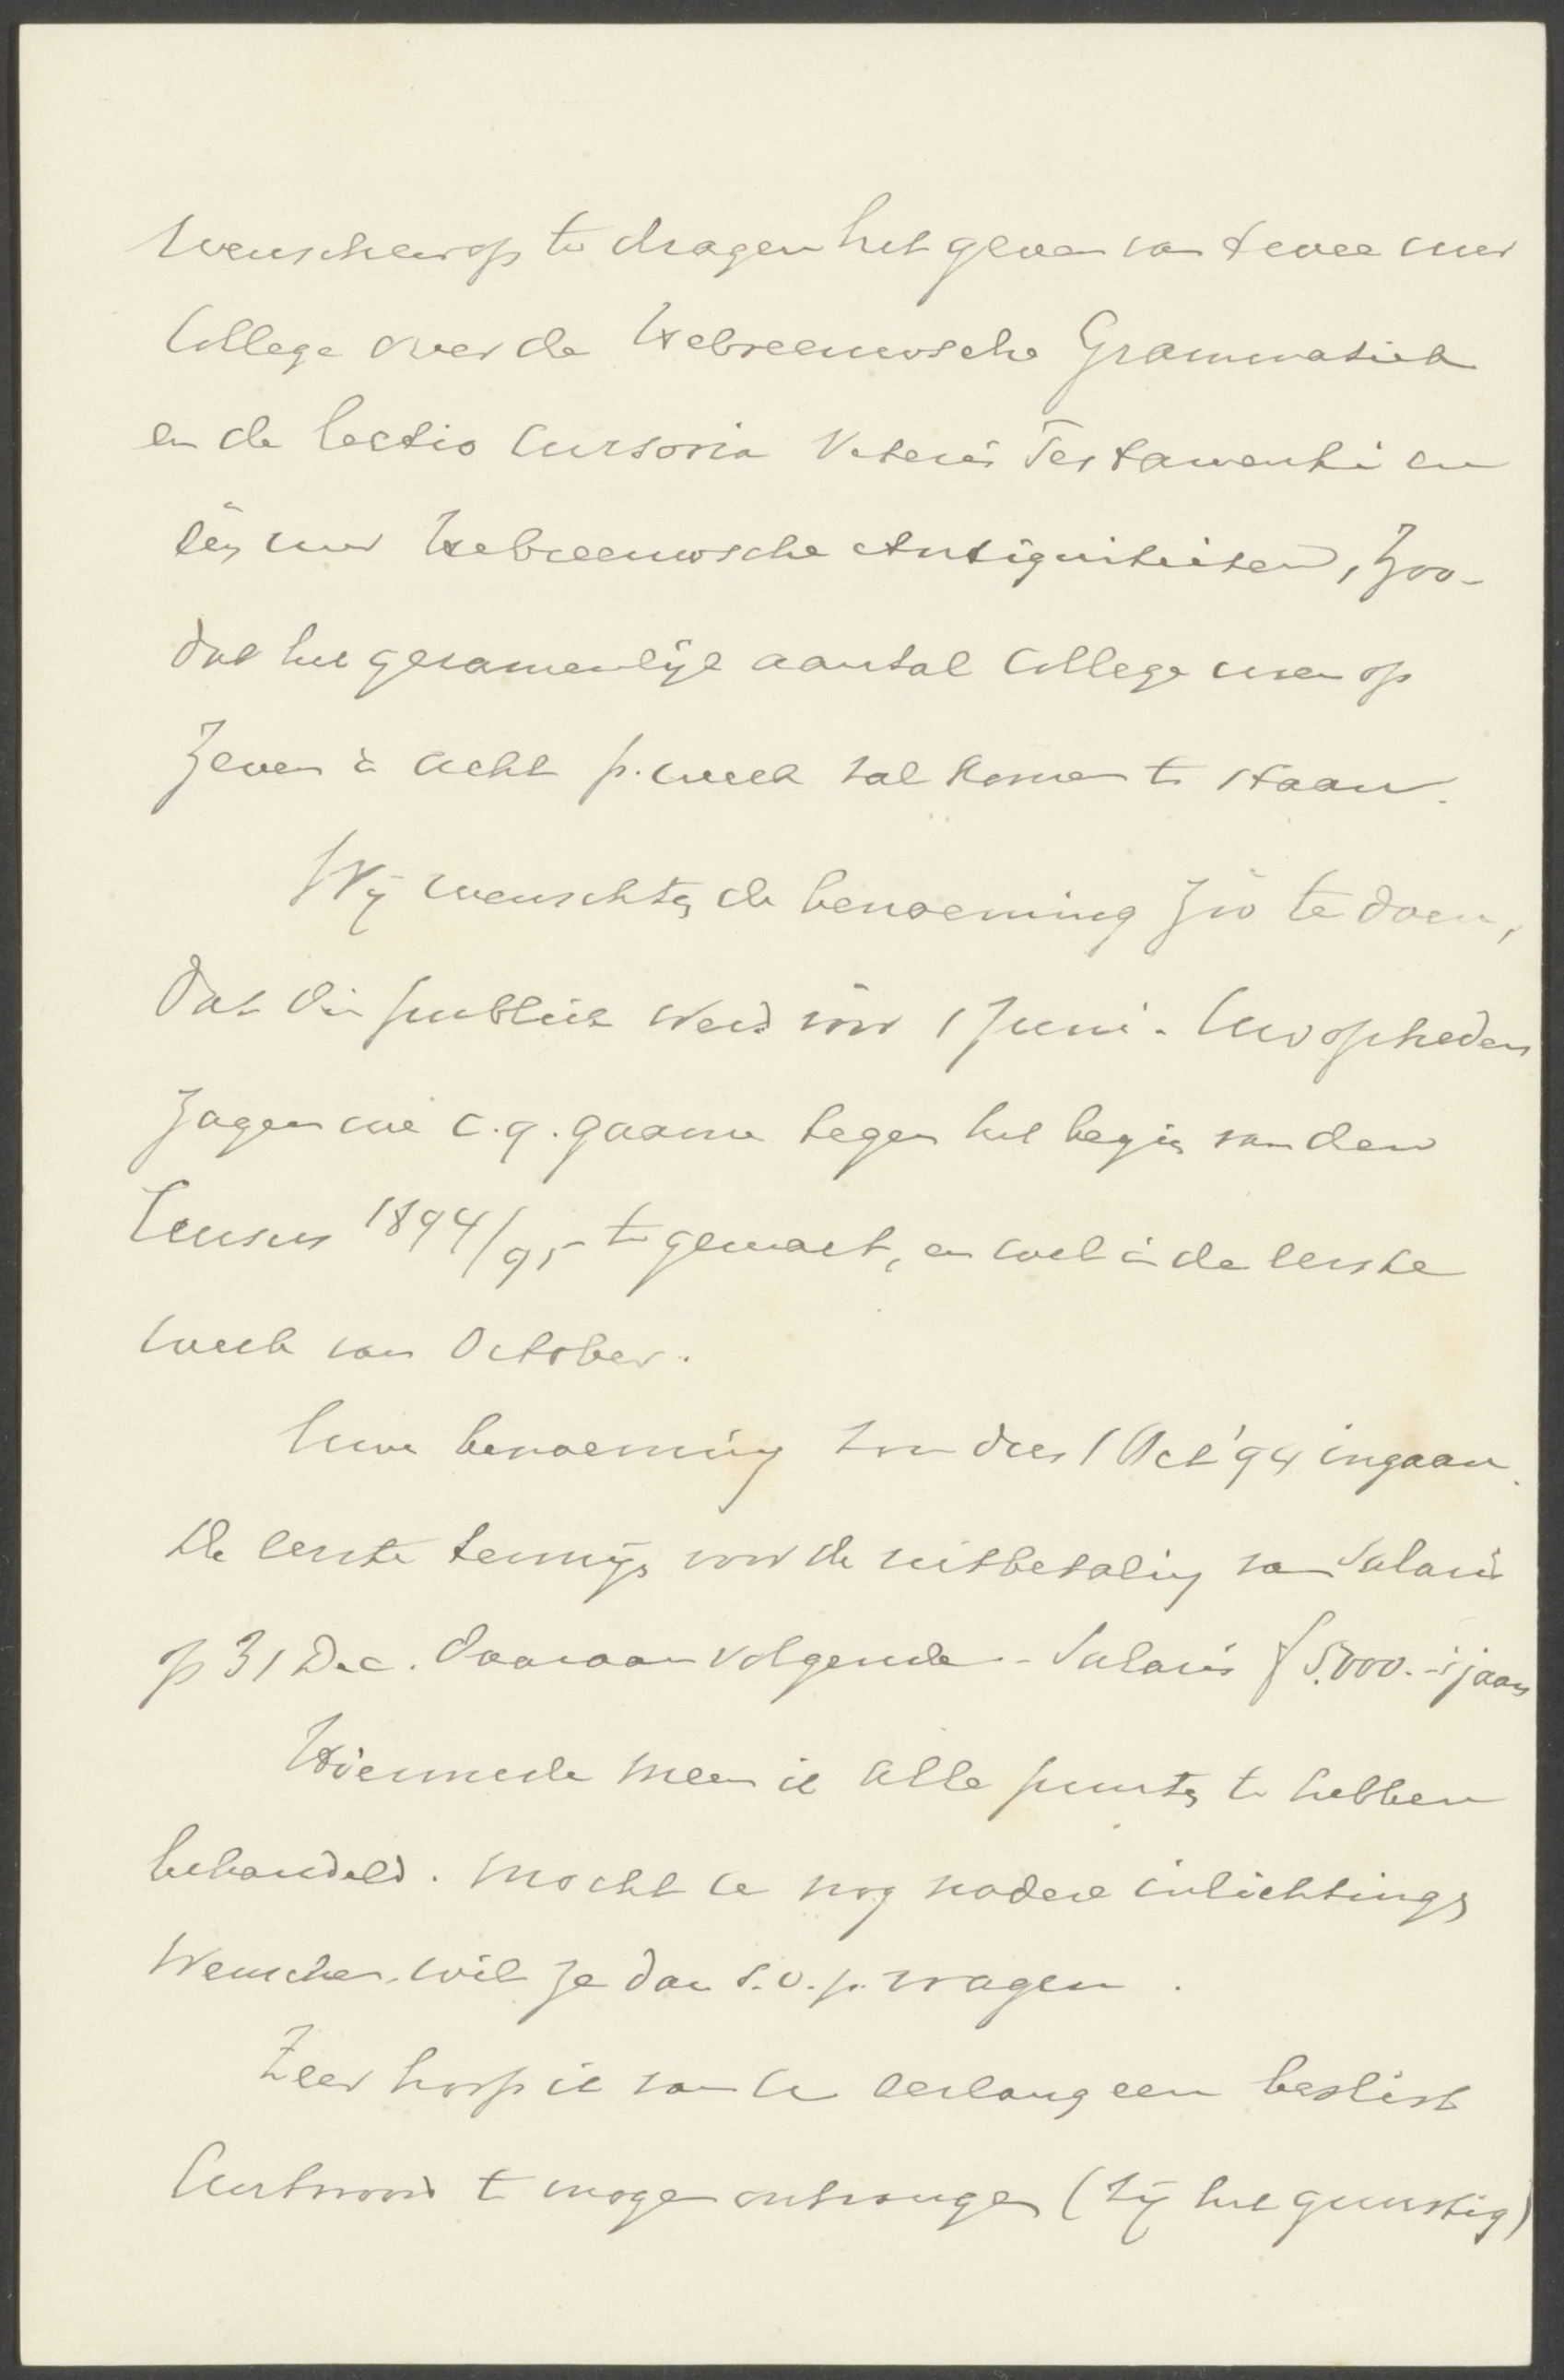 wenschen op te dragen het geven van twee uur
College over de Hebreeuwsche Grammatica
en de lectio cursoria Veteris Testamenti en
één uur Hebreeuwsche Antiquiteiten, zoo-
dat het gezamenlijk aantal College uren op
zeven à acht p. week zal komen te staan.
Wij wenschten de benoeming zóó te doen,
dat die publiek werd vóór 1 Juni. Uw optreden
zagen we c.q. gaarne tegen het begin van den
Cursus 1894/95 te gemoet, en wel in de eerste
week van October.
Uwe benoeming zou dus 1 Oct '94 ingaan.
De eerste termijn voor de uitbetaling van Salaris
op 31 Dec. daaraanvolgende. - Salaris f 5.000.- 's jaars
Hiermede meen ik alle punten te hebben
behandeld. Mocht u nog nadere inlichtingen
wenschen, wil ze dan s.v.p. vragen.
Zeer hoop ik van U eerlang een beslist
Antwoord te mogen ontvangen (zij het gunstig)